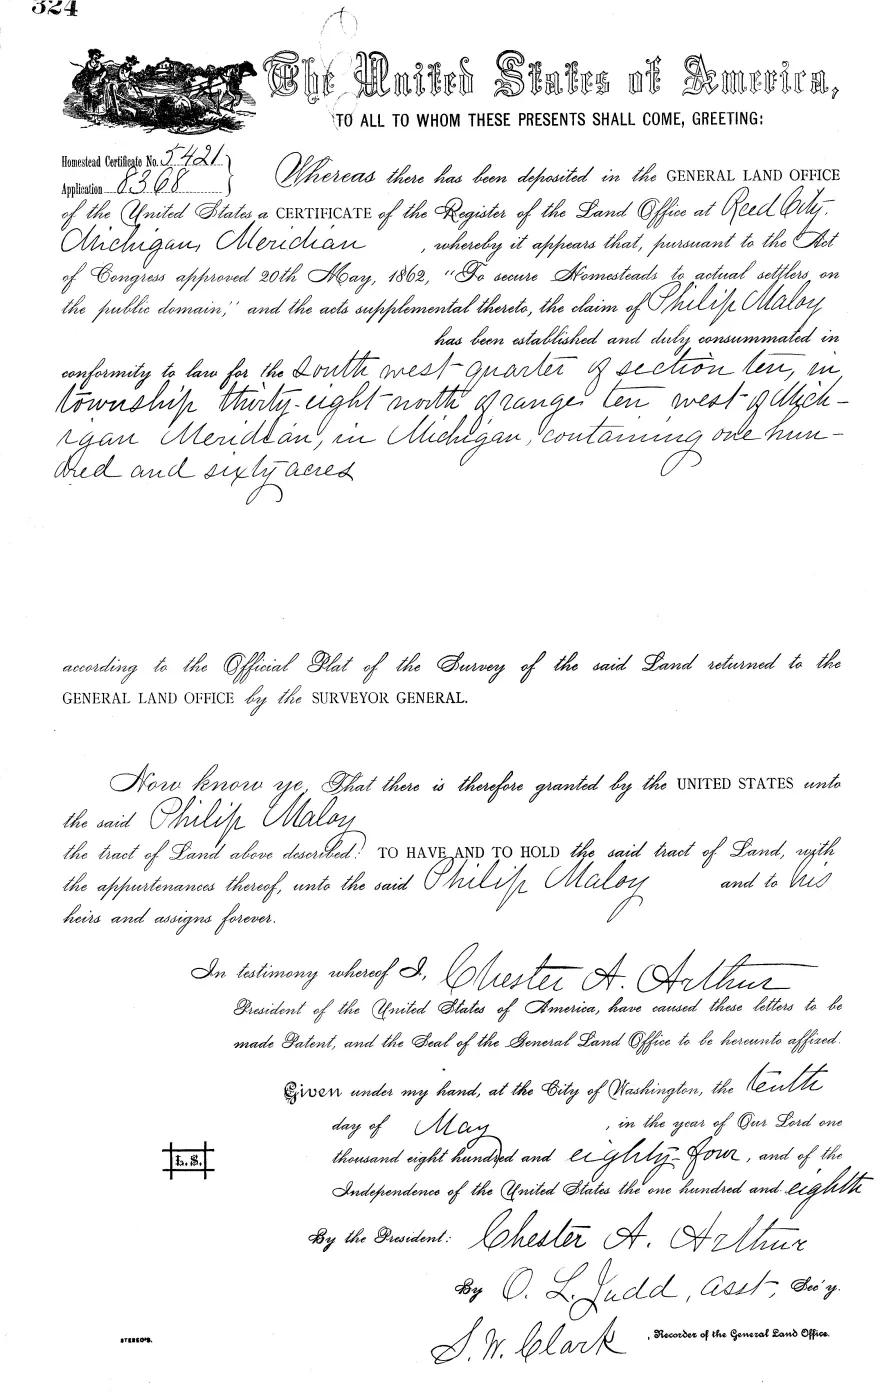 324
The United States of America,
TO ALL TO WHOM THESE PRESENTS SHALL COME, GREETING:
Homestead Certificate No. 5421
Application 8368
Whereas there has been deposited in the GENERAL LAND OFFICE
of the United States a CERTIFICATE of the Register of the Land Office at Reed City,
Michigan, Meridian , whereby it appears that, pursuant to the Act
of Congress approved 20th May, 1862, "To secure Homesteads to actual settlers on
the public domain," and the acts supplemental thereto, the claim of Philip Maloy
has been established and duly consummated in
conformity to law for the South west quarter of section ten, in
township thirty-eight north of range ten west of Mich-
igan Meridian, in Michigan, containing one hun-
dred and sixty acres
according to the Official Plat of the Survey of the said Land returned to the
GENERAL LAND OFFICE by the SURVEYOR GENERAL.
Now know ye, That there is therefore granted by the UNITED STATES unto
the said Philip Maloy
the tract of Land above described: TO HAVE AND TO HOLD the said tract of Land, with
the appurtenances thereof, unto the said Philip Maloy and to his
heirs and assigns forever.
In testimony whereof I, Chester A. Arthur
President of the United States of America, have caused these letters to be
made Patent, and the Seal of the General Land Office to be hereunto affixed.
Given under my hand, at the City of Washington, the tenth
day of May , in the year of Our Lord one
thousand eight hundred and eighty-four, and of the
Independence of the United States the one hundred and eighth
L.S.
By the President: Chester A. Arthur
By O. L. Judd, asst, Sec'y.
S. W. Clark , Recorder of the General Land Office.
STEREO'S.